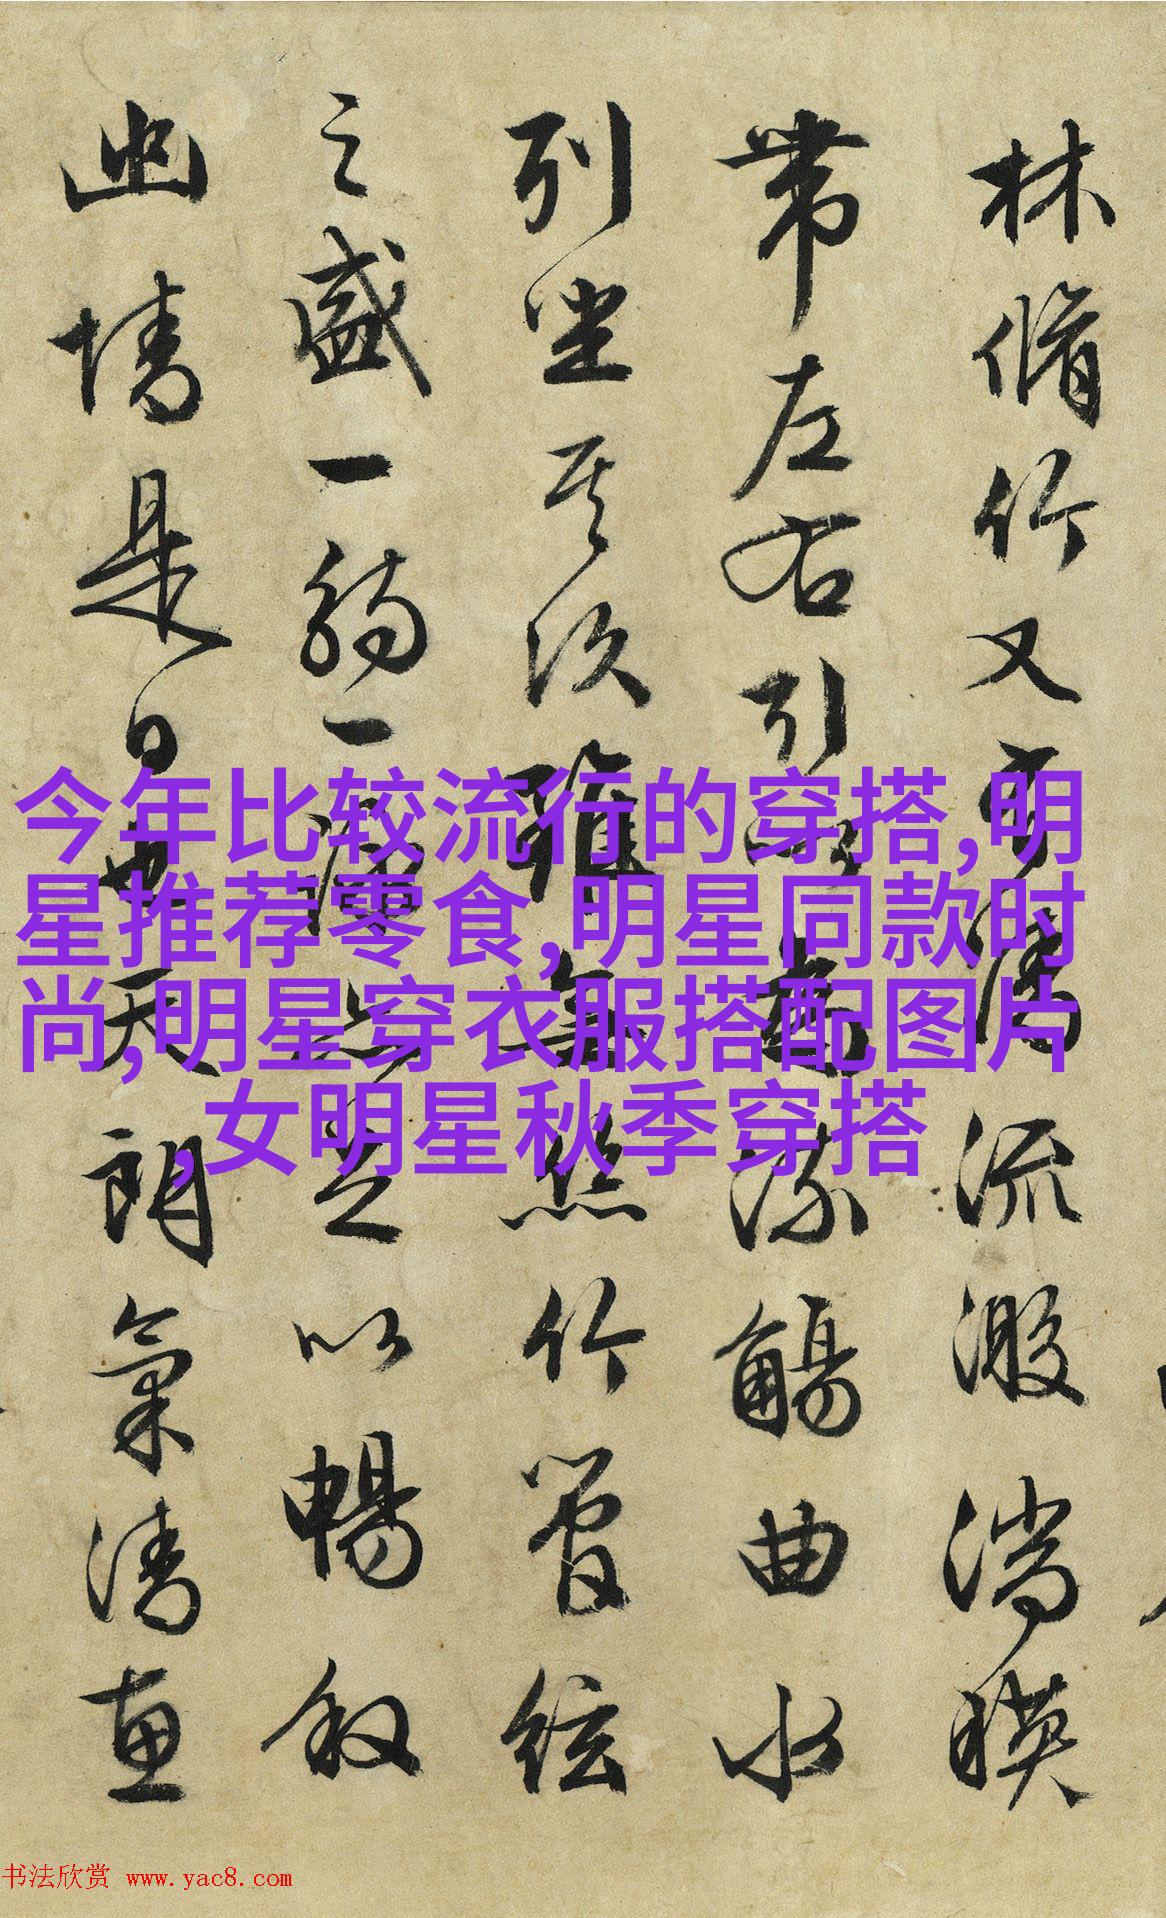 林脩竹又有清流激湍暎
帶左右引以為流觴曲水
列坐其次雖無絲竹管絃
之盛一觴一詠亦足以暢叙
幽情是日也天朗氣清惠
今年比较流行的穿搭,明
星推荐零食,明星同款时
尚,明星穿衣服搭配图片
,女明星秋季穿搭
书法欣赏 www.yac8.com